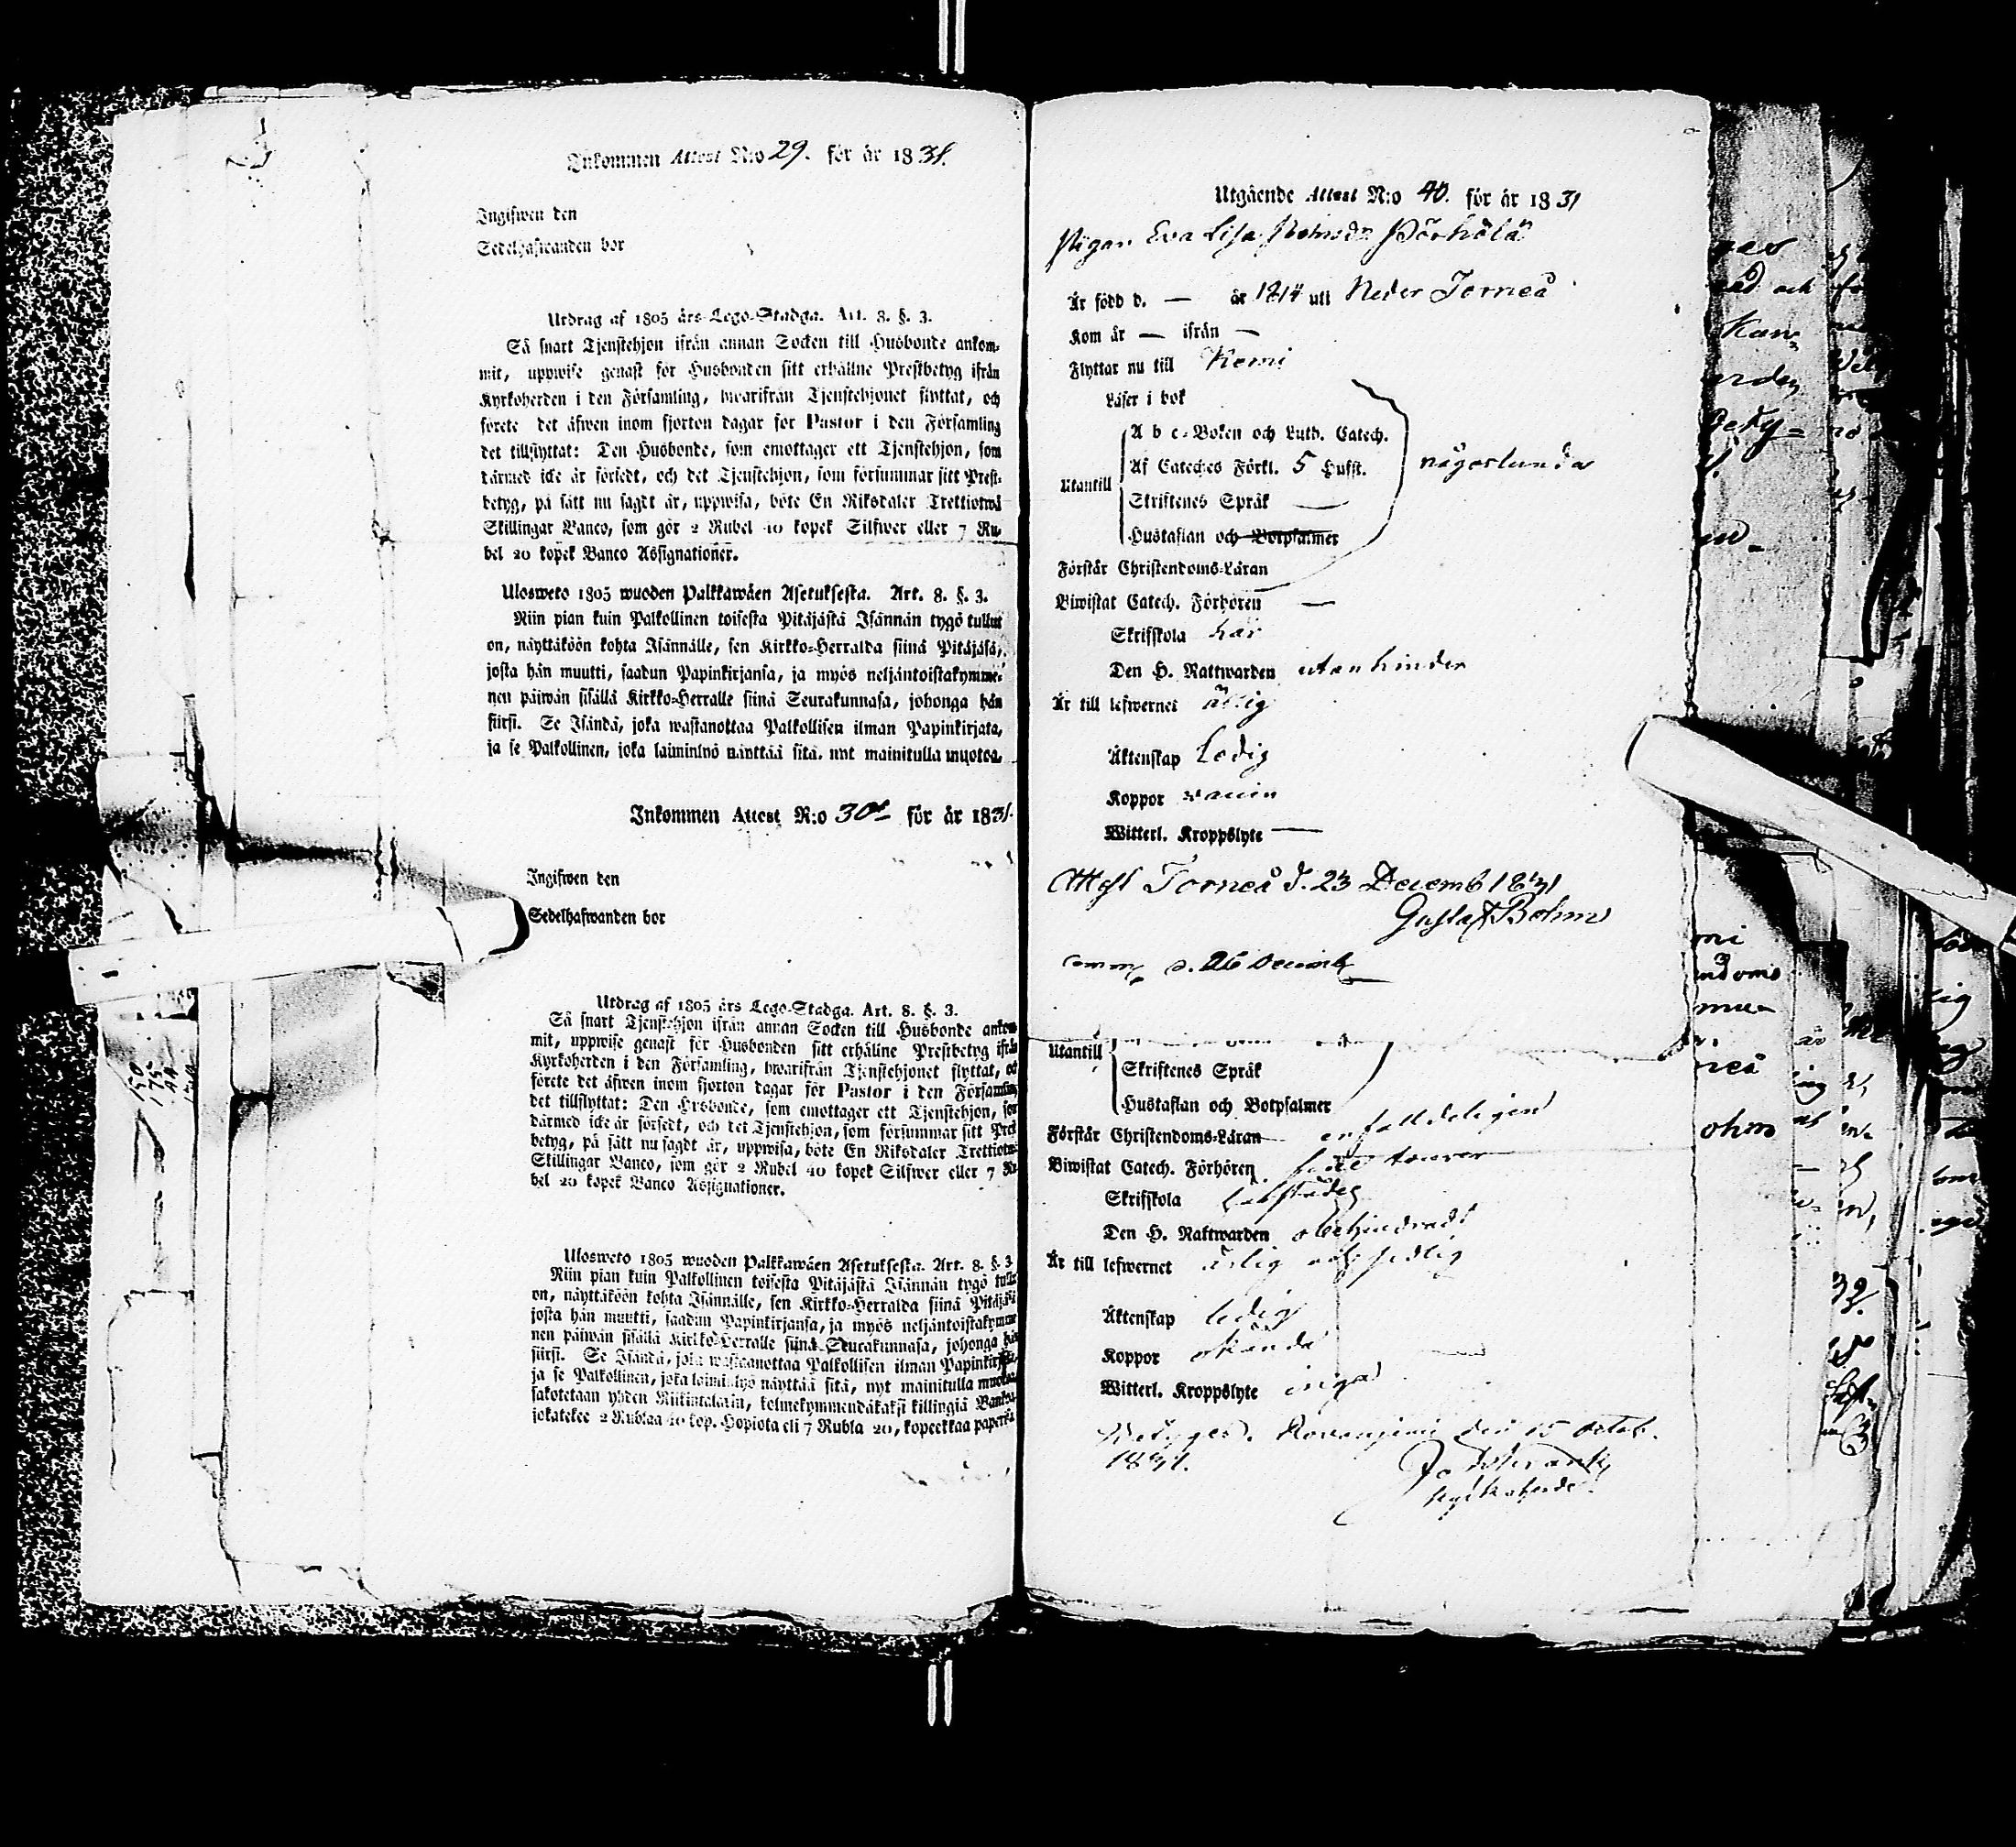 Inkommen Attest N:o 29. för år 1831.
Ingifwen den
Sedelhafwanden bor
Utdrag af 1805 års Lego-Stadga. Art. 8. §. 3.
Så snart Tjenstehjon ifrån annan Socken till Husbonde ankom-
mit, uppwise genast för Husbonden sitt erhållne Prestbetyg ifrån
Kyrkoherden i den Församling, hwarifrån Tjenstehjonet flyttat, och
förete det äfwen inom fjorton dagar för Pastor i den Församling
det tillflyttat: Den Husbonde, som emottager ett Tjenstehjon, som
därmed icke är försedt, och det Tjenstehjon, som försummar sitt Prest-
betyg, på sätt nu sagdt är, uppwisa, böte En Riksdaler Trettiotwå
Skillingar Banco, som gör 2 Rubel 40 kopek Silfwer eller 7 Ru-
bel 20 kopek Banco Assignationer.
Ulosweto 1805 wuoden Palkkawäen Asetuksesta. Art. 8. §. 3.
Niin pian kuin Palkollinen toisesta Pitäjästä Isännän tygö tullut
on, näyttäköön kohta Isännälle, sen Kirkko-Herralda siinä Pitäjäsä,
josta hän muutti, saadun Papinkirjansa, ja myös neljäntoistakymme-
nen päiwän sisällä Kirkko-Herralle siinä Seurakunnasa, johonga hän
siirsi. Se Isändä, joka wastanottaa Palkollisen ilman Papinkirjata,
ja se Palkollinen, joka laiminlyö näyttää sitä, nyt mainitulla muotoa,
Inkommen Attest N:o 30 för år 1831.
Ingifwen den
Sedelhafwanden bor
Utdrag af 1805 års Lego-Stadga. Art. 8. §. 3.
Så snart Tjenstehjon ifrån annan Socken till Husbonde ankom
mit, uppwise genast för Husbonden sitt erhållne Prestbetyg ifrån
Kyrkoherden i den Församling, hwarifrån Tjenstehjonet flyttat, och
förete det äfwen inom fjorton dagar för Pastor i den Församling
det tillflyttat: Den Husbonde, som emottager ett Tjenstehjon, som
därmed icke är försedt, och det Tjenstehjon, som försummar sitt Prest
betyg, på sätt nu sagdt är, uppwisa, böte En Riksdaler Trettiotwå
Skillingar Banco, som gör 2 Rubel 40 kopek Silfwer eller 7 Ru
bel 20 kopek Banco Assignationer.
Ulosweto 1805 wuoden Palkkawäen Asetuksesta. Art. 8. §. 3.
Niin pian kuin Palkollinen toisesta Pitäjästä Isännän tygö tullut
on, näyttäköön kohta Isännälle, sen Kirkko-Herralda siinä Pitäjäsä
josta hän muutti, saadun Papinkirjansa, ja myös neljäntoistakymme
nen päiwän sisällä Kirkko-Herralle siinä Seurakunnasa, johonga hän
siirsi. Se Isändä, joka wastaanottaa Palkollisen ilman Papinkirjata,
ja se Palkollinen, joka laiminlyö näyttää sitä, nyt mainitulla muotoa
sakotetaan yhden Riikintalarin, kolmekymmendäkaksi killingiä Bankos
jokatekee 2 Rublaa 40 kop. Hopiota eli 7 Rubla 20, kopeekkaa paperia
Utgående Attest N:o 40. för år 1831
Pigan Eva Lisa Pörhölä
Är född d. — år 1814 uti Neder Torneå
Kom år — ifrån —
Flyttar nu till Kemi
Läser i bok
A b c-Boken och Luth. Catech.
Af Cateches Förkl. 5 Hufst. någorlunda
Utantill
Skriftenes Språk —
Hustaflan och Botpsalmer
Förstår Christendoms-Läran
Biwistat Catech. Förhören —
Skrifskola här
Den H. Nattwarden utan hinder
Är till lefwernet ärlig
Äktenskap Ledig
Koppor vaccin
Witterl. Kroppslyte —
Attest Torneå d. 23 Decemb 1831
Gustaf Bohm
d. 26 Decemb
Utantill
Skriftenes Språk
Hustaflan och Botpsalmer
Förstår Christendoms-Läran enfalldeligen
Biwistat Catech. Förhören
Skrifskola
Den H. Nattwarden obehindrad
Är till lefwernet ärlig och sedlig
Äktenskap ledig
Koppor
Witterl. Kroppslyte inga
Betyges. Rovaniemi den 15 Octob.
1831.